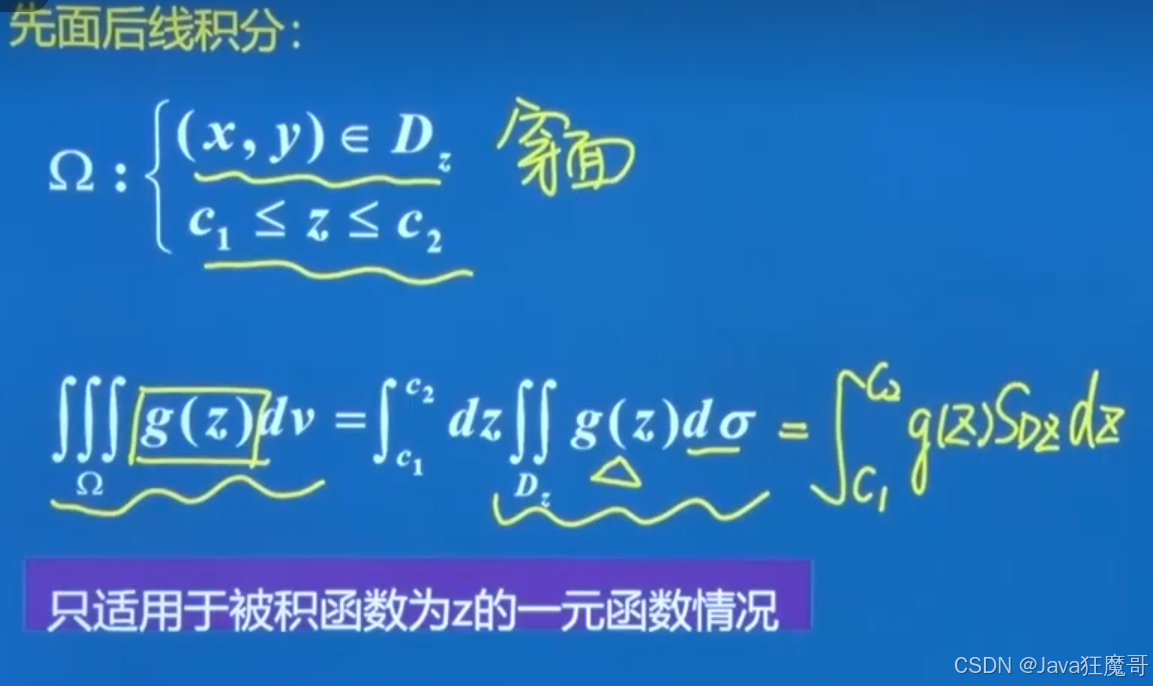 先面后线积分:
Ω : { (x, y) ∈ D_z 穿面
c₁ ≤ z ≤ c₂
∭_Ω g(z)dv = ∫_{c₁}^{c₂} dz ∬_{D_z} g(z)dσ = ∫_{C₁}^{C₂} g(z)S_{Dz}dz
只适用于被积函数为z的一元函数情况
CSDN @Java狂魔哥